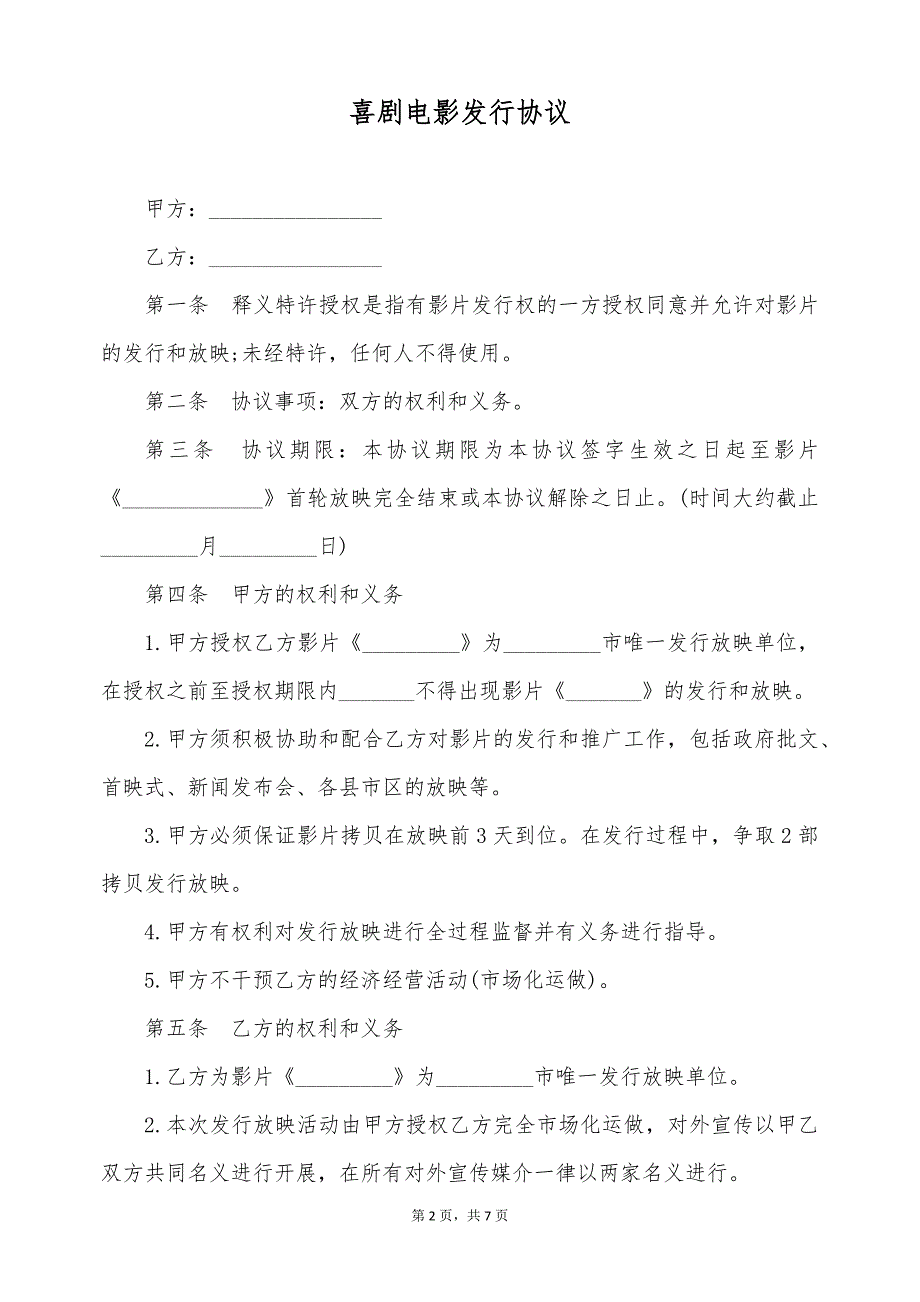 喜剧电影发行协议
甲方：________________
乙方：________________
第一条　释义特许授权是指有影片发行权的一方授权同意并允许对影片
的发行和放映;未经特许，任何人不得使用。
第二条　协议事项：双方的权利和义务。
第三条　协议期限：本协议期限为本协议签字生效之日起至影片
《_____________》首轮放映完全结束或本协议解除之日止。(时间大约截止
_________月_________日)
第四条　甲方的权利和义务
1.甲方授权乙方影片《_________》为_________市唯一发行放映单位，
在授权之前至授权期限内_______不得出现影片《_______》的发行和放映。
2.甲方须积极协助和配合乙方对影片的发行和推广工作，包括政府批文、
首映式、新闻发布会、各县市区的放映等。
3.甲方必须保证影片拷贝在放映前 3 天到位。在发行过程中，争取 2 部
拷贝发行放映。
4.甲方有权利对发行放映进行全过程监督并有义务进行指导。
5.甲方不干预乙方的经济经营活动(市场化运做)。
第五条　乙方的权利和义务
1.乙方为影片《_________》为_________市唯一发行放映单位。
2.本次发行放映活动由甲方授权乙方完全市场化运做，对外宣传以甲乙
双方共同名义进行开展，在所有对外宣传媒介一律以两家名义进行。
第 2 页，共 7 页